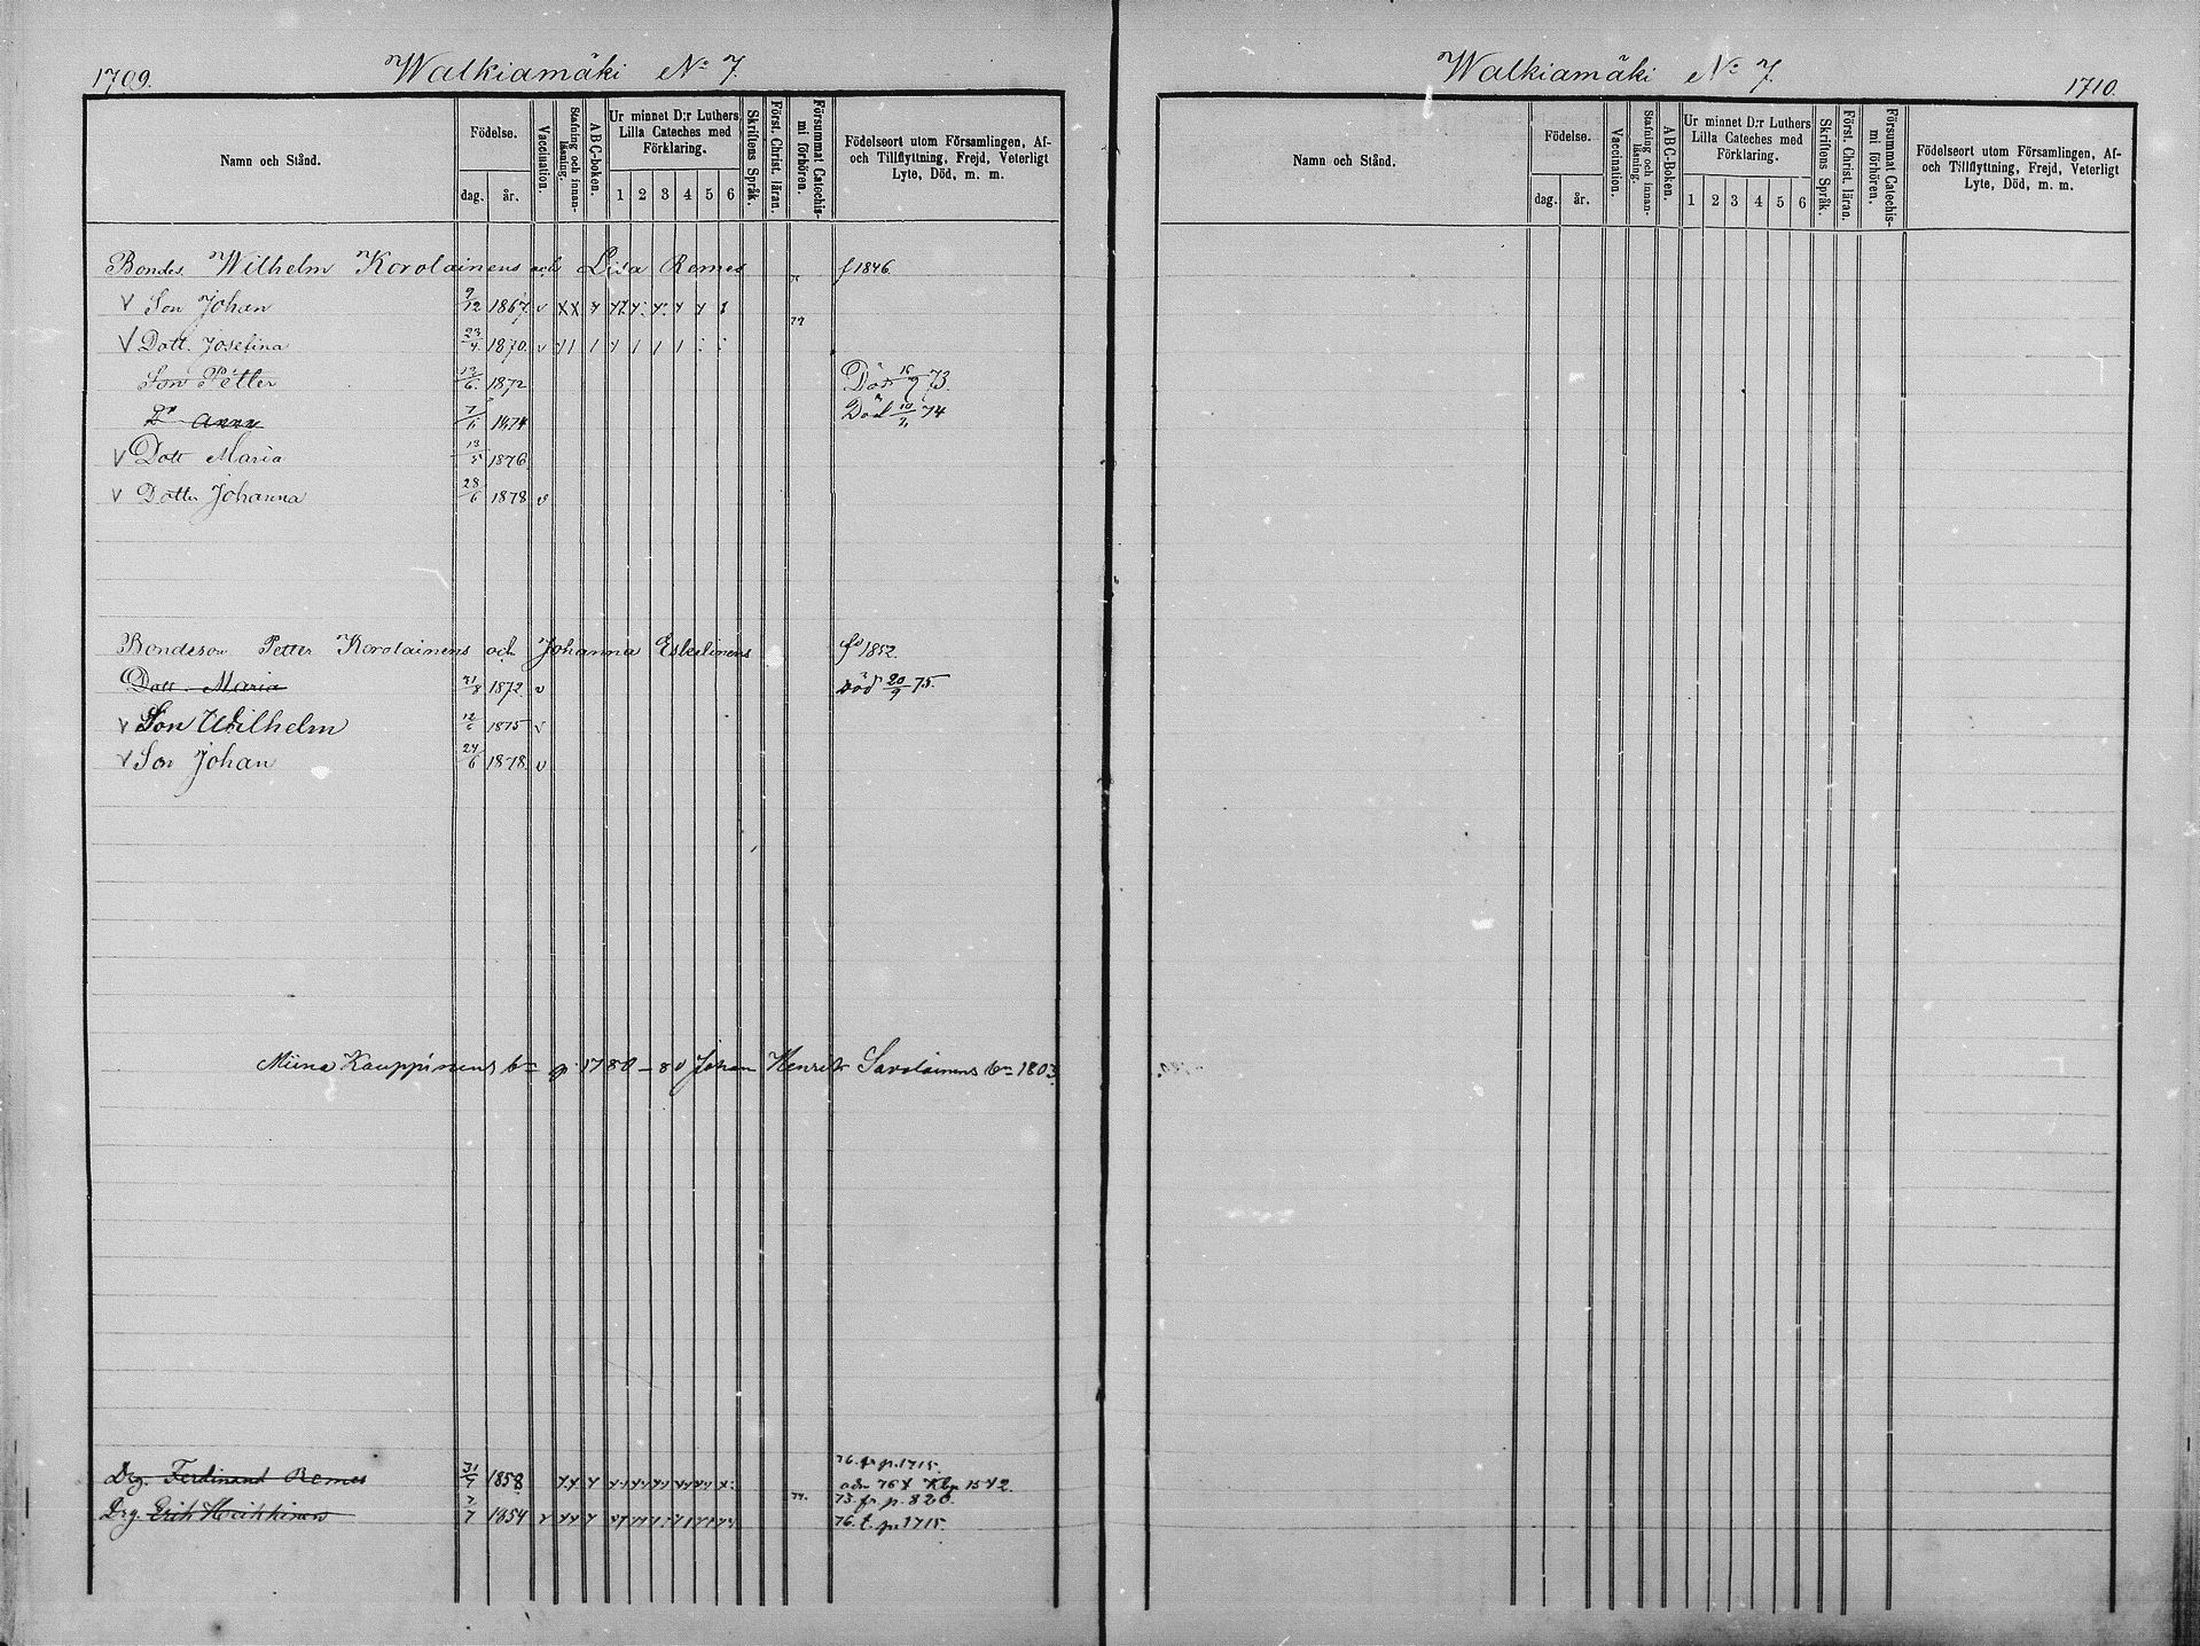 1709.
Walkiamäki No 7.
Namn och Stånd.
Födelse.
dag.
år.
Vaccination.
Stafning och innan-
läsning.
ABC-boken.
Ur minnet D:r Luthers
Lilla Cateches med
Förklaring.
1 2 3 4 5 6
Skriftens Språk.
Först. Christ. läran.
Försummat Catechis-
mi förhören.
Födelseort utom Församlingen, Af-
och Tillflyttning, Frejd, Veterligt
Lyte, Död, m. m.
Bondes Wilhelm Korolainens och Lisa Remes f 1846.
v Son Johan 9/12 1867. v
77
v Dott. Josefina 23/4 1870. v
Son Petter 13/6. 1872 Död 16/9 73.
Anna 1874 Död 74
v Dott Maria 13/5 1876
v Dotter Johanna 28/6 1878 v
Bondeson Petter Korolainens och Johanna Eskelinens fd 1852.
Dott. Maria 31/8 1872. v Död 20/9 75.
v Son Wilhelm 12/6 1875 v
v Son Johan 24/6 1878. v
Miina Kauppinens bn p 1780 - 80 Johan Henrik Savolainens bn 1803.
76. fr p. 1715.
Drg. Ferdinand Remes 31/7 1858 och 76 t Kbn 1542.
73. fr. p. 820.
Drg. Erik Heikkinen 1854 76. t. p. 1715.
Walkiamäki No 7.
1710.
Namn och Stånd.
Födelse.
dag.
år.
Vaccination.
Stafning och innan-
läsning.
ABC-Boken.
Ur minnet D:r Luthers
Lilla Cateches med
Förklaring.
1 2 3 4 5 6
Skriftens Språk.
Först. Christ. läran.
Försummat Catechis-
mi förhören.
Födelseort utom Församlingen, Af-
och Tillflyttning, Frejd, Veterligt
Lyte, Död, m. m.